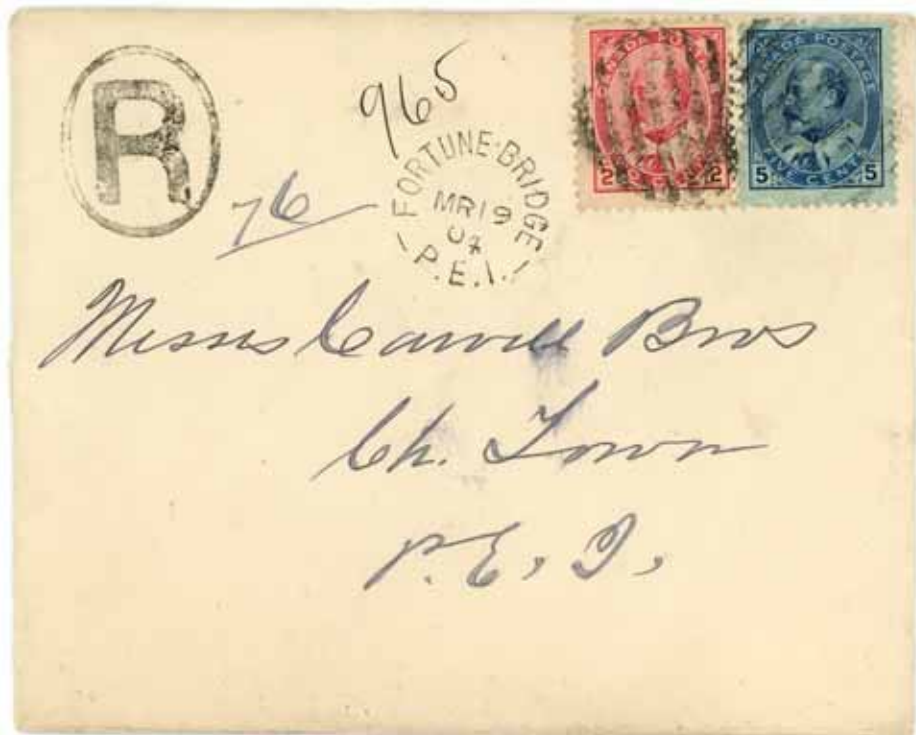 R
965
76
FORTUNE·BRIDGE
MR 19
04
P.E.I.
CANADA POSTAGE
2 CENTS 2
CANADA POSTAGE
5 FIVE CENTS 5
Messrs Carvell Bros
Ch. Town
P. E. I.